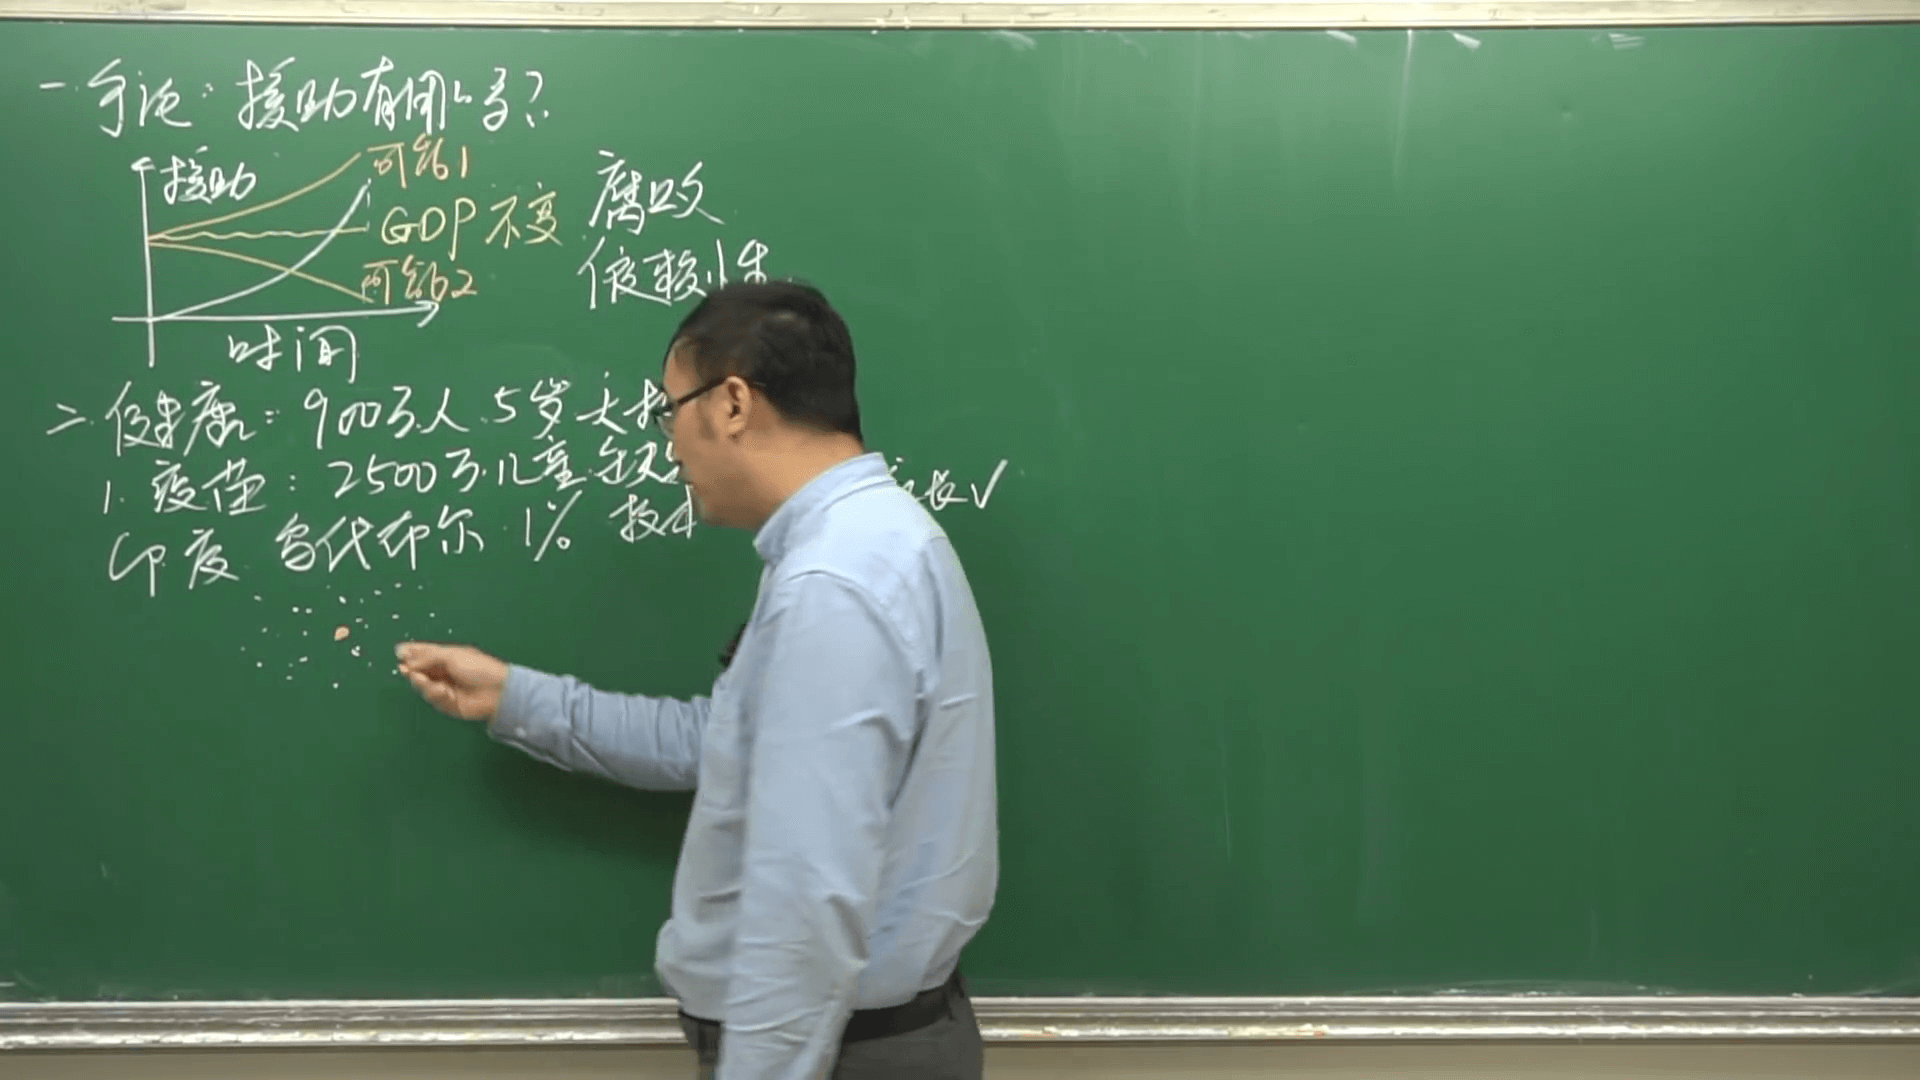 一.争论:援助有用吗?
援助
可能1
GDP不变
可能2
时间
腐败
依赖性
二.健康:900万人.5岁
1.疫苗:2500万.儿童
长√
印度 乌代布尔 1% 技术